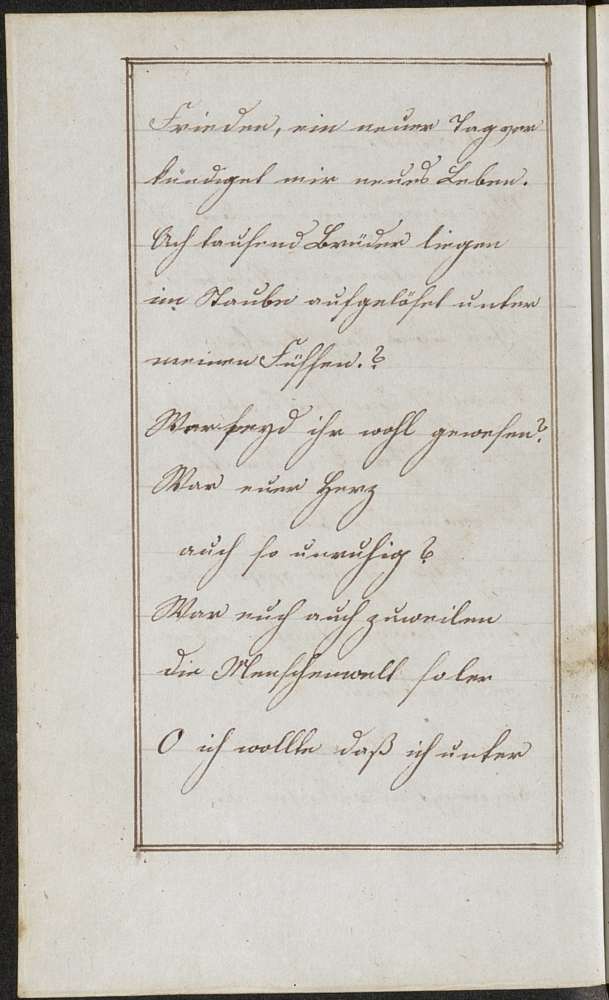 Frieden, ein neuer Tag ver
kündiget mir neues Leben.
Ach tausend Brüder liegen
im Staube aufgelöset unter
meinen Füssen.?
Wer seyd ihr wohl gewesen?
War euer Herz
auch so unruhig?
War euch auch zuweilen
die Menschenwelt so ler
O ich wollte daß ich unter